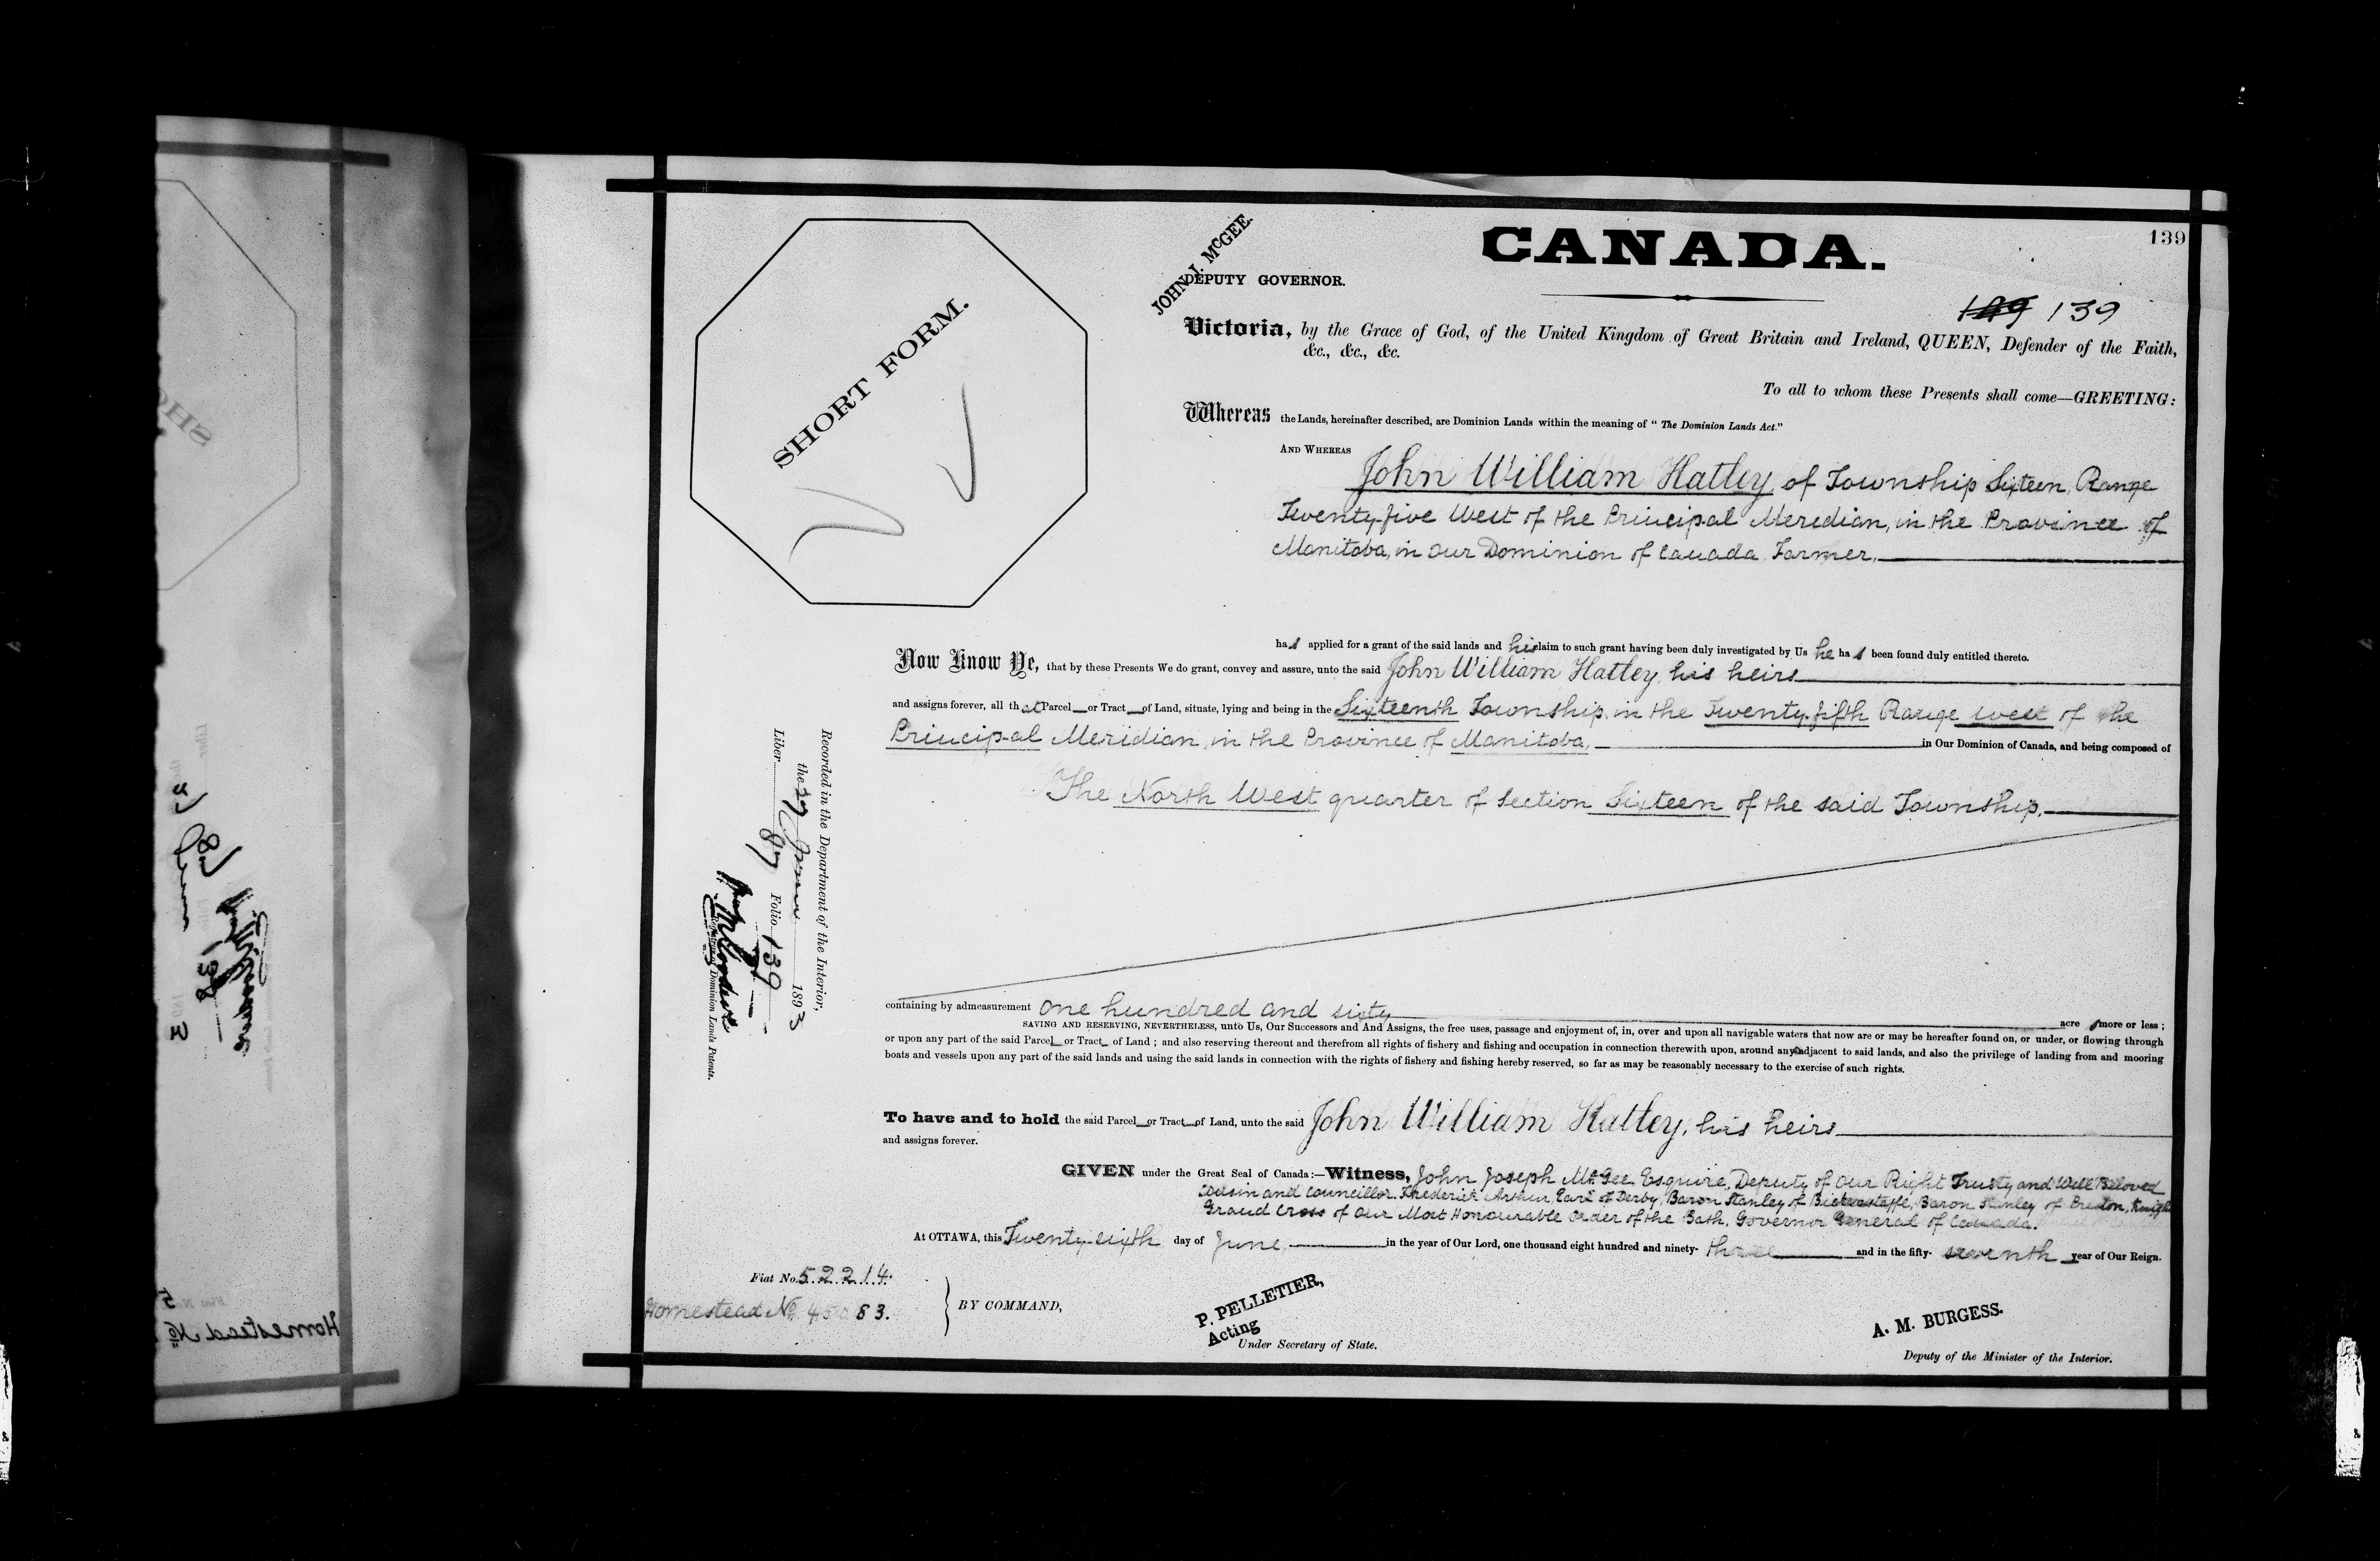 139
CANADA.
JOHN J. McGEE.
DEPUTY GOVERNOR.
139
SHORT FORM.
Victoria, by the Grace of God, of the United Kingdom of Great Britain and Ireland, QUEEN, Defender of the Faith,
&c., &c., &c.
To all to whom these Presents shall come—GREETING:
Whereas the Lands, hereinafter described, are Dominion Lands within the meaning of "The Dominion Lands Act."
AND WHEREAS
John William Hatley, of Township Sixteen, Range
Twenty-five West of the Principal Meridian, in the Province of
Manitoba, in Our Dominion of Canada Farmer,
has applied for a grant of the said lands and his claim to such grant having been duly investigated by Us he has been found duly entitled thereto.
Now Know Ye, that by these Presents We do grant, convey and assure, unto the said John William Hatley, his heirs
and assigns forever, all that Parcel or Tract of Land, situate, lying and being in the Sixteenth Township, in the Twenty-fifth Range west of the
Principal Meridian, in the Province of Manitoba, in Our Dominion of Canada, and being composed of
The North West quarter of Section Sixteen of the said Township.
Recorded in the Department of the Interior,
the 27 June 1893
Liber 87 Folio 139
Registrar of Dominion Lands Patents.
containing by admeasurement one hundred and sixty acres more or less;
SAVING AND RESERVING, NEVERTHELESS, unto Us, Our Successors and And Assigns, the free uses, passage and enjoyment of, in, over and upon all navigable waters that now are or may be hereafter found on, or under, or flowing through
or upon any part of the said Parcel or Tract of Land; and also reserving thereout and therefrom all rights of fishery and fishing and occupation in connection therewith upon, around and adjacent to said lands, and also the privilege of landing from and mooring
boats and vessels upon any part of the said lands and using the said lands in connection with the rights of fishery and fishing hereby reserved, so far as may be reasonably necessary to the exercise of such rights.
To have and to hold the said Parcel or Tract of Land, unto the said John William Hatley, his heirs
and assigns forever.
GIVEN under the Great Seal of Canada:—Witness, John Joseph McGee Esquire, Deputy of Our Right Trusty and Well Beloved
Cousin and Councillor Frederick Arthur, Earl of Derby, Baron Stanley of Bickerstaffe, Baron Stanley of Preston, Knight
Grand Cross of Our Most Honourable Order of the Bath, Governor General of Canada.
At OTTAWA, this Twenty-sixth day of June in the year of Our Lord, one thousand eight hundred and ninety-three and in the fifty-seventh year of Our Reign.
Fiat No. 52214.
Homestead No. 45083.
BY COMMAND,
P. PELLETIER,
Acting
Under Secretary of State.
A. M. BURGESS.
Deputy of the Minister of the Interior.